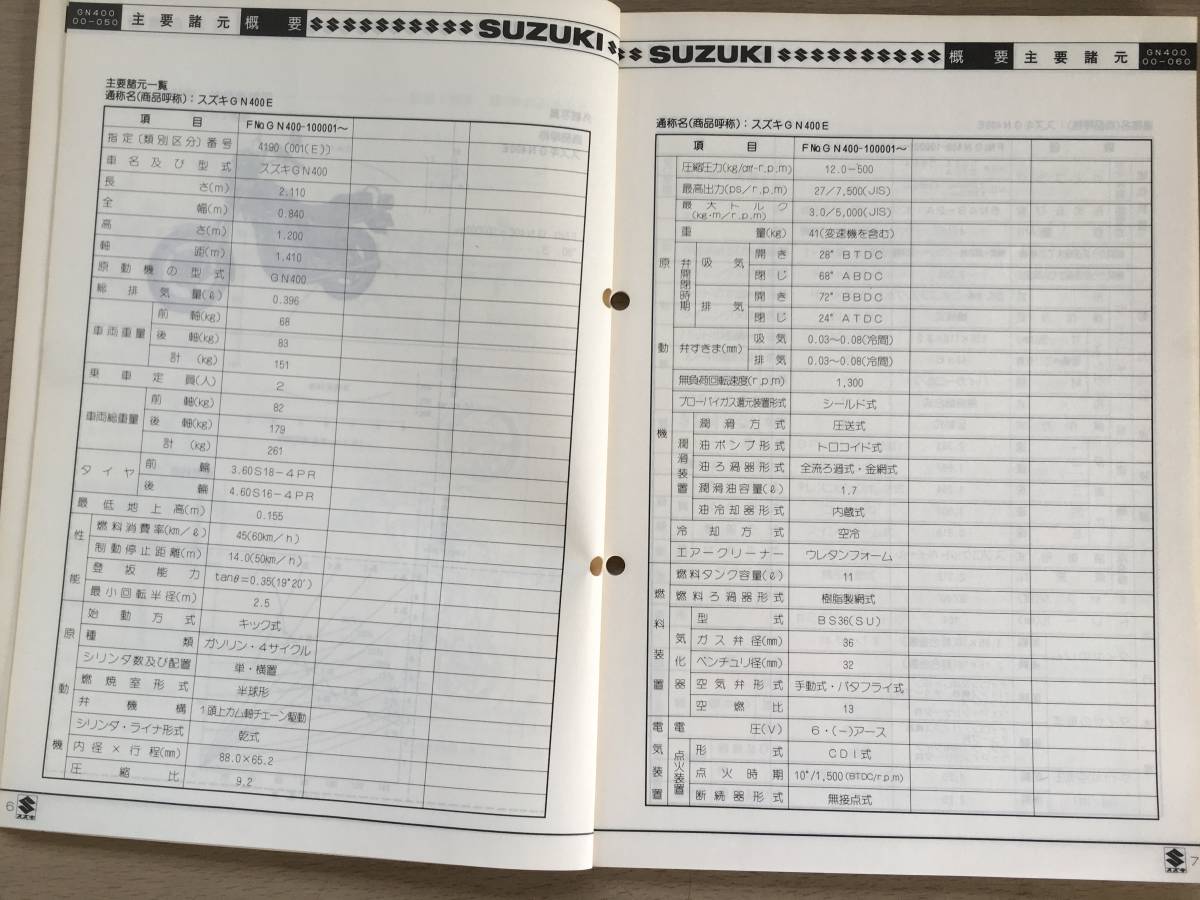 GN400
00-050
主要諸元
概要
SUZUKI
主要諸元一覧
通称名(商品呼称)：スズキGN400E
項目 FNo.GN400-100001～
指定(類別区分)番号 4190(001(E))
車名及び型式 スズキGN400
長さ(m) 2.110
全幅(m) 0.840
高さ(m) 1.200
軸距(m) 1.410
原動機の型式 GN400
総排気量(ℓ) 0.396
車両重量 前軸(kg) 68
後軸(kg) 83
計(kg) 151
乗車定員(人) 2
車両総重量 前軸(kg) 82
後軸(kg) 179
計(kg) 261
タイヤ 前輪 3.60S18-4PR
後輪 4.60S16-4PR
最低地上高(m) 0.155
性能 燃料消費率(km/ℓ) 45(60km/h)
制動停止距離(m) 14.0(50km/h)
登坂能力 tanθ=0.35(19°20′)
最小回転半径(m) 2.5
原動機 始動方式 キック式
種類 ガソリン・4サイクル
シリンダ数及び配置 単・横置
燃焼室形式 半球形
弁機構 1頭上カム軸チェーン駆動
シリンダ・ライナ形式 乾式
内径×行程(mm) 88.0×65.2
圧縮比 9.2
6
スズキ
SUZUKI
概要
主要諸元
GN400
00-060
通称名(商品呼称)：スズキGN400E
項目 FNo.GN400-100001～
原動機 圧縮圧力(kg/cm²-r.p.m) 12.0-500
最高出力(ps/r.p.m) 27/7,500(JIS)
最大トルク(kg-m/r.p.m) 3.0/5,000(JIS)
重量(kg) 41(変速機を含む)
弁開閉時期 吸気 開き 28°BTDC
閉じ 68°ABDC
排気 開き 72°BBDC
閉じ 24°ATDC
弁すきま(mm) 吸気 0.03～0.08(冷間)
排気 0.03～0.08(冷間)
無負荷回転速度(r.p.m) 1,300
ブローバイガス還元装置形式 シールド式
潤滑装置 潤滑方式 圧送式
油ポンプ形式 トロコイド式
油ろ過器形式 全流ろ過式・金網式
潤滑油容量(ℓ) 1.7
油冷却器形式 内蔵式
冷却方式 空冷
燃料装置 エアークリーナー ウレタンフォーム
燃料タンク容量(ℓ) 11
燃料ろ過器形式 樹脂製網式
気化器 型式 BS36(SU)
ガス弁径(mm) 36
ベンチュリ径(mm) 32
空気弁形式 手動式・バタフライ式
空燃比 13
電気装置 電圧(V) 6・(-)アース
点火装置 形式 CDI式
点火時期 10°/1,500(BTDC/r.p.m)
断続器形式 無接点式
スズキ
7